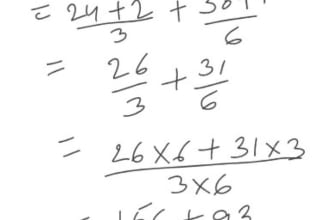 = 24+2/3 + 30+1/6
= 26/3 + 31/6
= 26×6 + 31×3/3×6
= 156 + 93